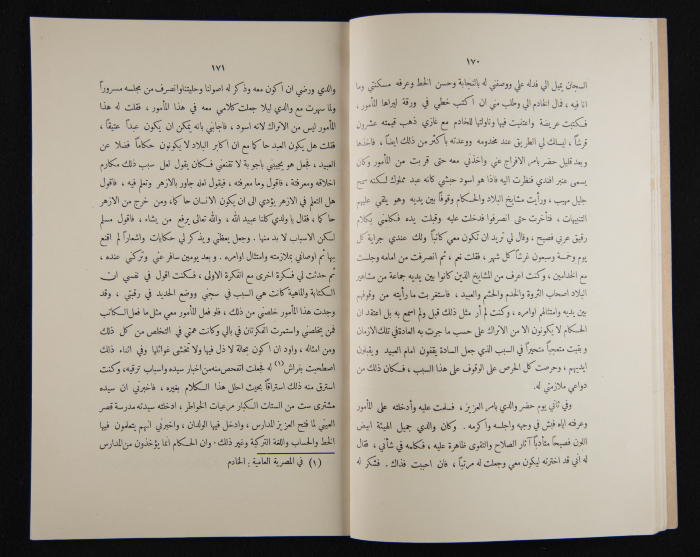 ١٧٠
السجان يميل الي فدله علي ووصفني له بالنجابة وحسن الخط وعرفه مسكنتي وما
انا فيه ، فمال الخادم الي وطلب مني ان اكتب خطي في ورقة ليراها المأمور ،
فكتبت عريضة واعتنيت فيها وناولتها للخادم مع غازي ذهب قيمته عشرون
قرشاً ، ليسلك لي الطريق عند مخدومه ووعدته بأكثر من ذلك ايضاً ، فاخذها
وبعد قليل حضر بامر الافراج عني واخذني معه حتى قربت من المأمور وكان
يسمى عنبر افندي فنظرت اليه فاذا هو اسود حبشي كانه عبد مملوك لكنه سمح
جليل مهيب ، ورأيت مشايخ البلاد والحكام وقوفاً بين يديه وهو يلقي عليهم
التنبيهات ، فتأخرت حتى انصرفوا فدخلت عليه وقبلت يده فكلمني بكلام
رقيق عربي فصيح ، وقال لي تريد ان تكون معي كاتباً ولك عندي جراية كل
يوم وخمسة وسبعون غرشاً كل شهر ، فقلت نعم ، ثم انصرفت من امامه وجلست
مع الخدامين ، وكنت اعرف من المشايخ الذين كانوا بين يديه جماعة من مشاهير
البلاد اصحاب الثروة والخدم والحشم والعبيد ، فاستغربت ما رأيته من وقوفهم
بين يديه وامتثالهم اوامره ، وكنت لم أر مثل ذلك قبل ولم اسمع به بل اعتقد ان
الحكام لا يكونون الا من الاتراك على حسب ما جرت به العادة في تلك الازمان
وبقيت متعجباً متحيراً في السبب الذي جعل السادة يقفون امام العبيد ويقبلون
ايديهم ، وحرصت كل الحرص على الوقوف على هذا السبب ، فكان ذلك من
دواعي ملازمتي له.
وفي ثاني يوم حضر والدي بامر العزيز ، فسلمت عليه وأدخلته على المأمور
وعرفته اياه فبش في وجهه واجلسه واكرمه . وكان والدي جميل الهيئة ابيض
اللون فصيحاً متأدباً آثار الصلاح والتقوى ظاهرة عليه ، فكلمه في شأني ، فقال
له أني قد اخترته ليكون معي وجعلت له مرتباً ، فان احببت فذاك . فشكر له
١٧١
والدي ورضي ان اكون معه وذكر له اصولنا وحليتنا وانصرف من مجلسه مسروراً
ولما سهرت مع والدي ليلا جعلت كلامي معه في هذا المأمور ، فقلت له هذا
المأمور ليس من الاتراك لانه اسود ، فاجابني بانه يمكن ان يكون عبداً عتيقاً ،
فقلت هل يكون العبد حاكما مع ان اكابر البلاد لا يكونون حكاماً فضلا عن
العبيد ، فجعل هو يجيبني باجوبة لا تقنعني فكان يقول لعل سبب ذلك مكارم
اخلاقه ومعرفته ، فاقول وما معرفته ، فيقول لعله جاور بالازهر وتعلم فيه ، فاقول
هل التعلم في الازهر يؤدي الى ان يكون الانسان حاكما ، ومن خرج من الازهر
حاكما ، فقال يا ولدي كلنا عبيد الله ، والله تعالى يرفع من يشاء ، فاقول مسلم
لكن الاسباب لا بد منها . وجعل يعظني ويذكر لي حكايات واشعاراً لم اقنع
بها ثم اوصاني بملازمته وامتثال اوامره ، وبعد يومين سافر عني وتركني عنده ،
ثم حدثت لي فكرة اخرى مع الفكرة الاولى ، فكنت اقول في نفسي ان
الكتابة والماهية كانت هي السبب في سجني ووضع الحديد في رقبتي ، وقد
وجدت هذا المأمور خلصني من ذلك ، فلو فعل المأمور معي مثل ما فعل الكاتب
فمن يخلصني واستمرت الفكرتان في بالي وكانت همتي في التخلص من كل ذلك
ومن امثاله ، واود ان اكون بحالة لا ذل فيها ولا تخشى غوائلها وفي اثناء ذلك
اصطحبت بفراش (١) له فجعلت اتفحص منه عن اخبار سيده واسباب ترقيه ، وكنت
استرق منه ذلك استراقاً بحيث احلل هذا الكلام بغيره ، فاخبرني ان سيده
مشترى ست من الستات الكبار مرعيات الخواطر ، ادخلته سيدته مدرسة قصر
العيني لما فتح العزيز المدارس ، وادخل فيها الولدان ، واخبرني انهم يتعلمون فيها
الخط والحساب واللغة التركية وغير ذلك . وان الحكام انما يؤخذون من المدارس
(١) في المصرية العامية : الخادم